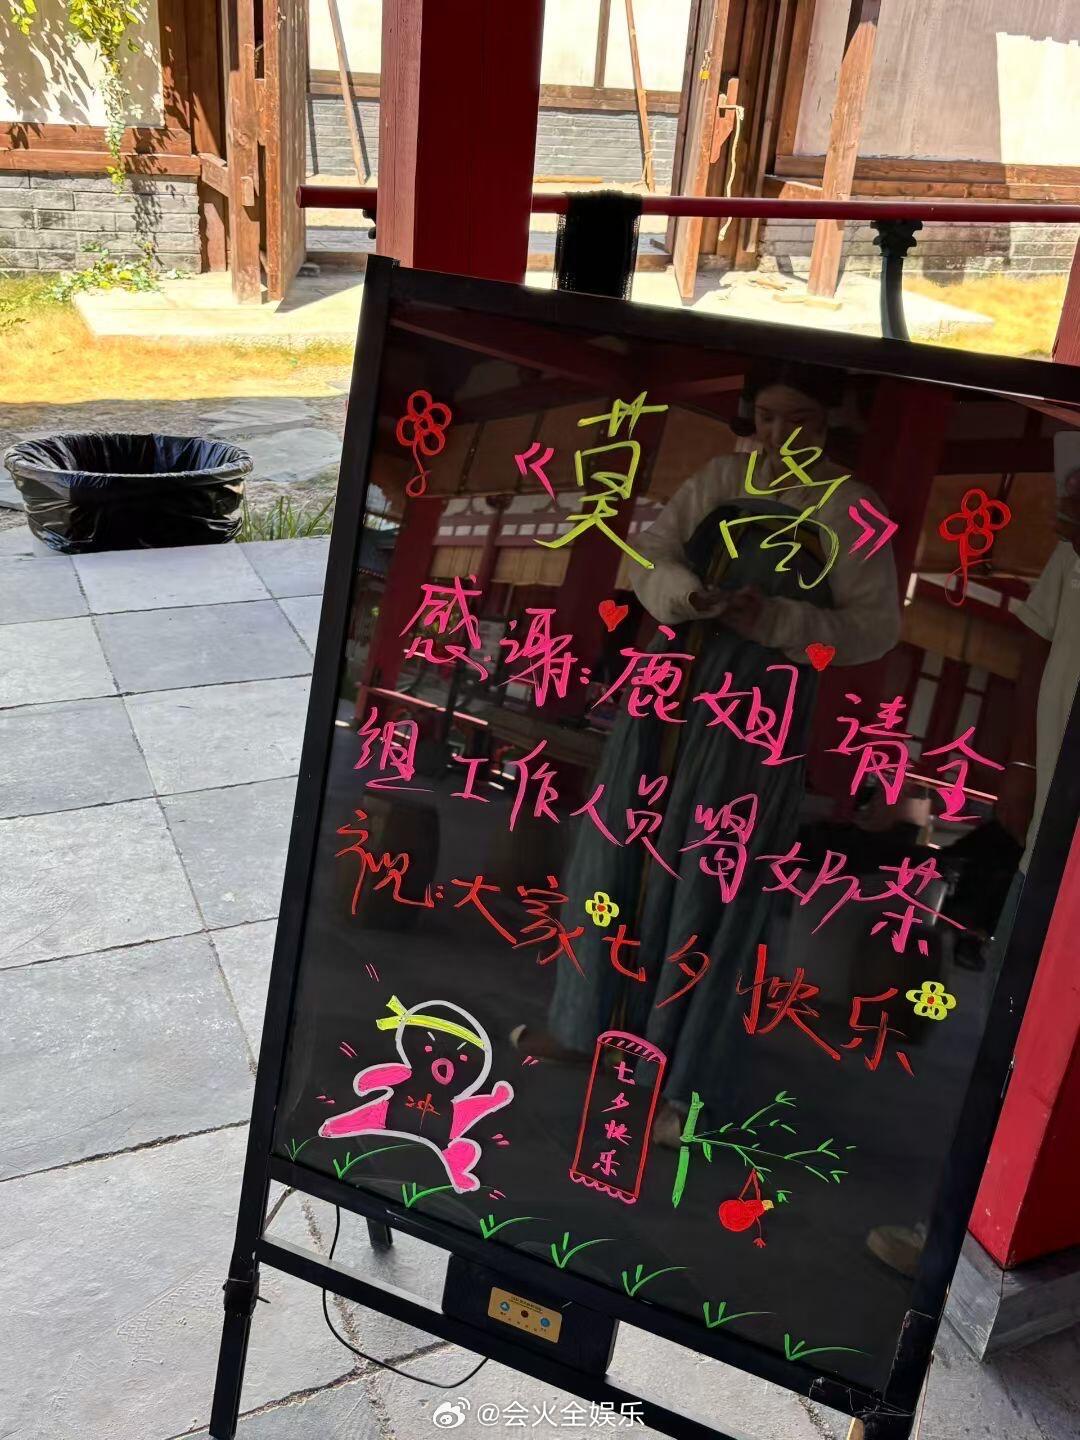 《莫离》
感谢:鹿姐请全
组工作人员喝奶茶
祝:大家七夕快乐
冲
七夕快乐
@会火全娱乐